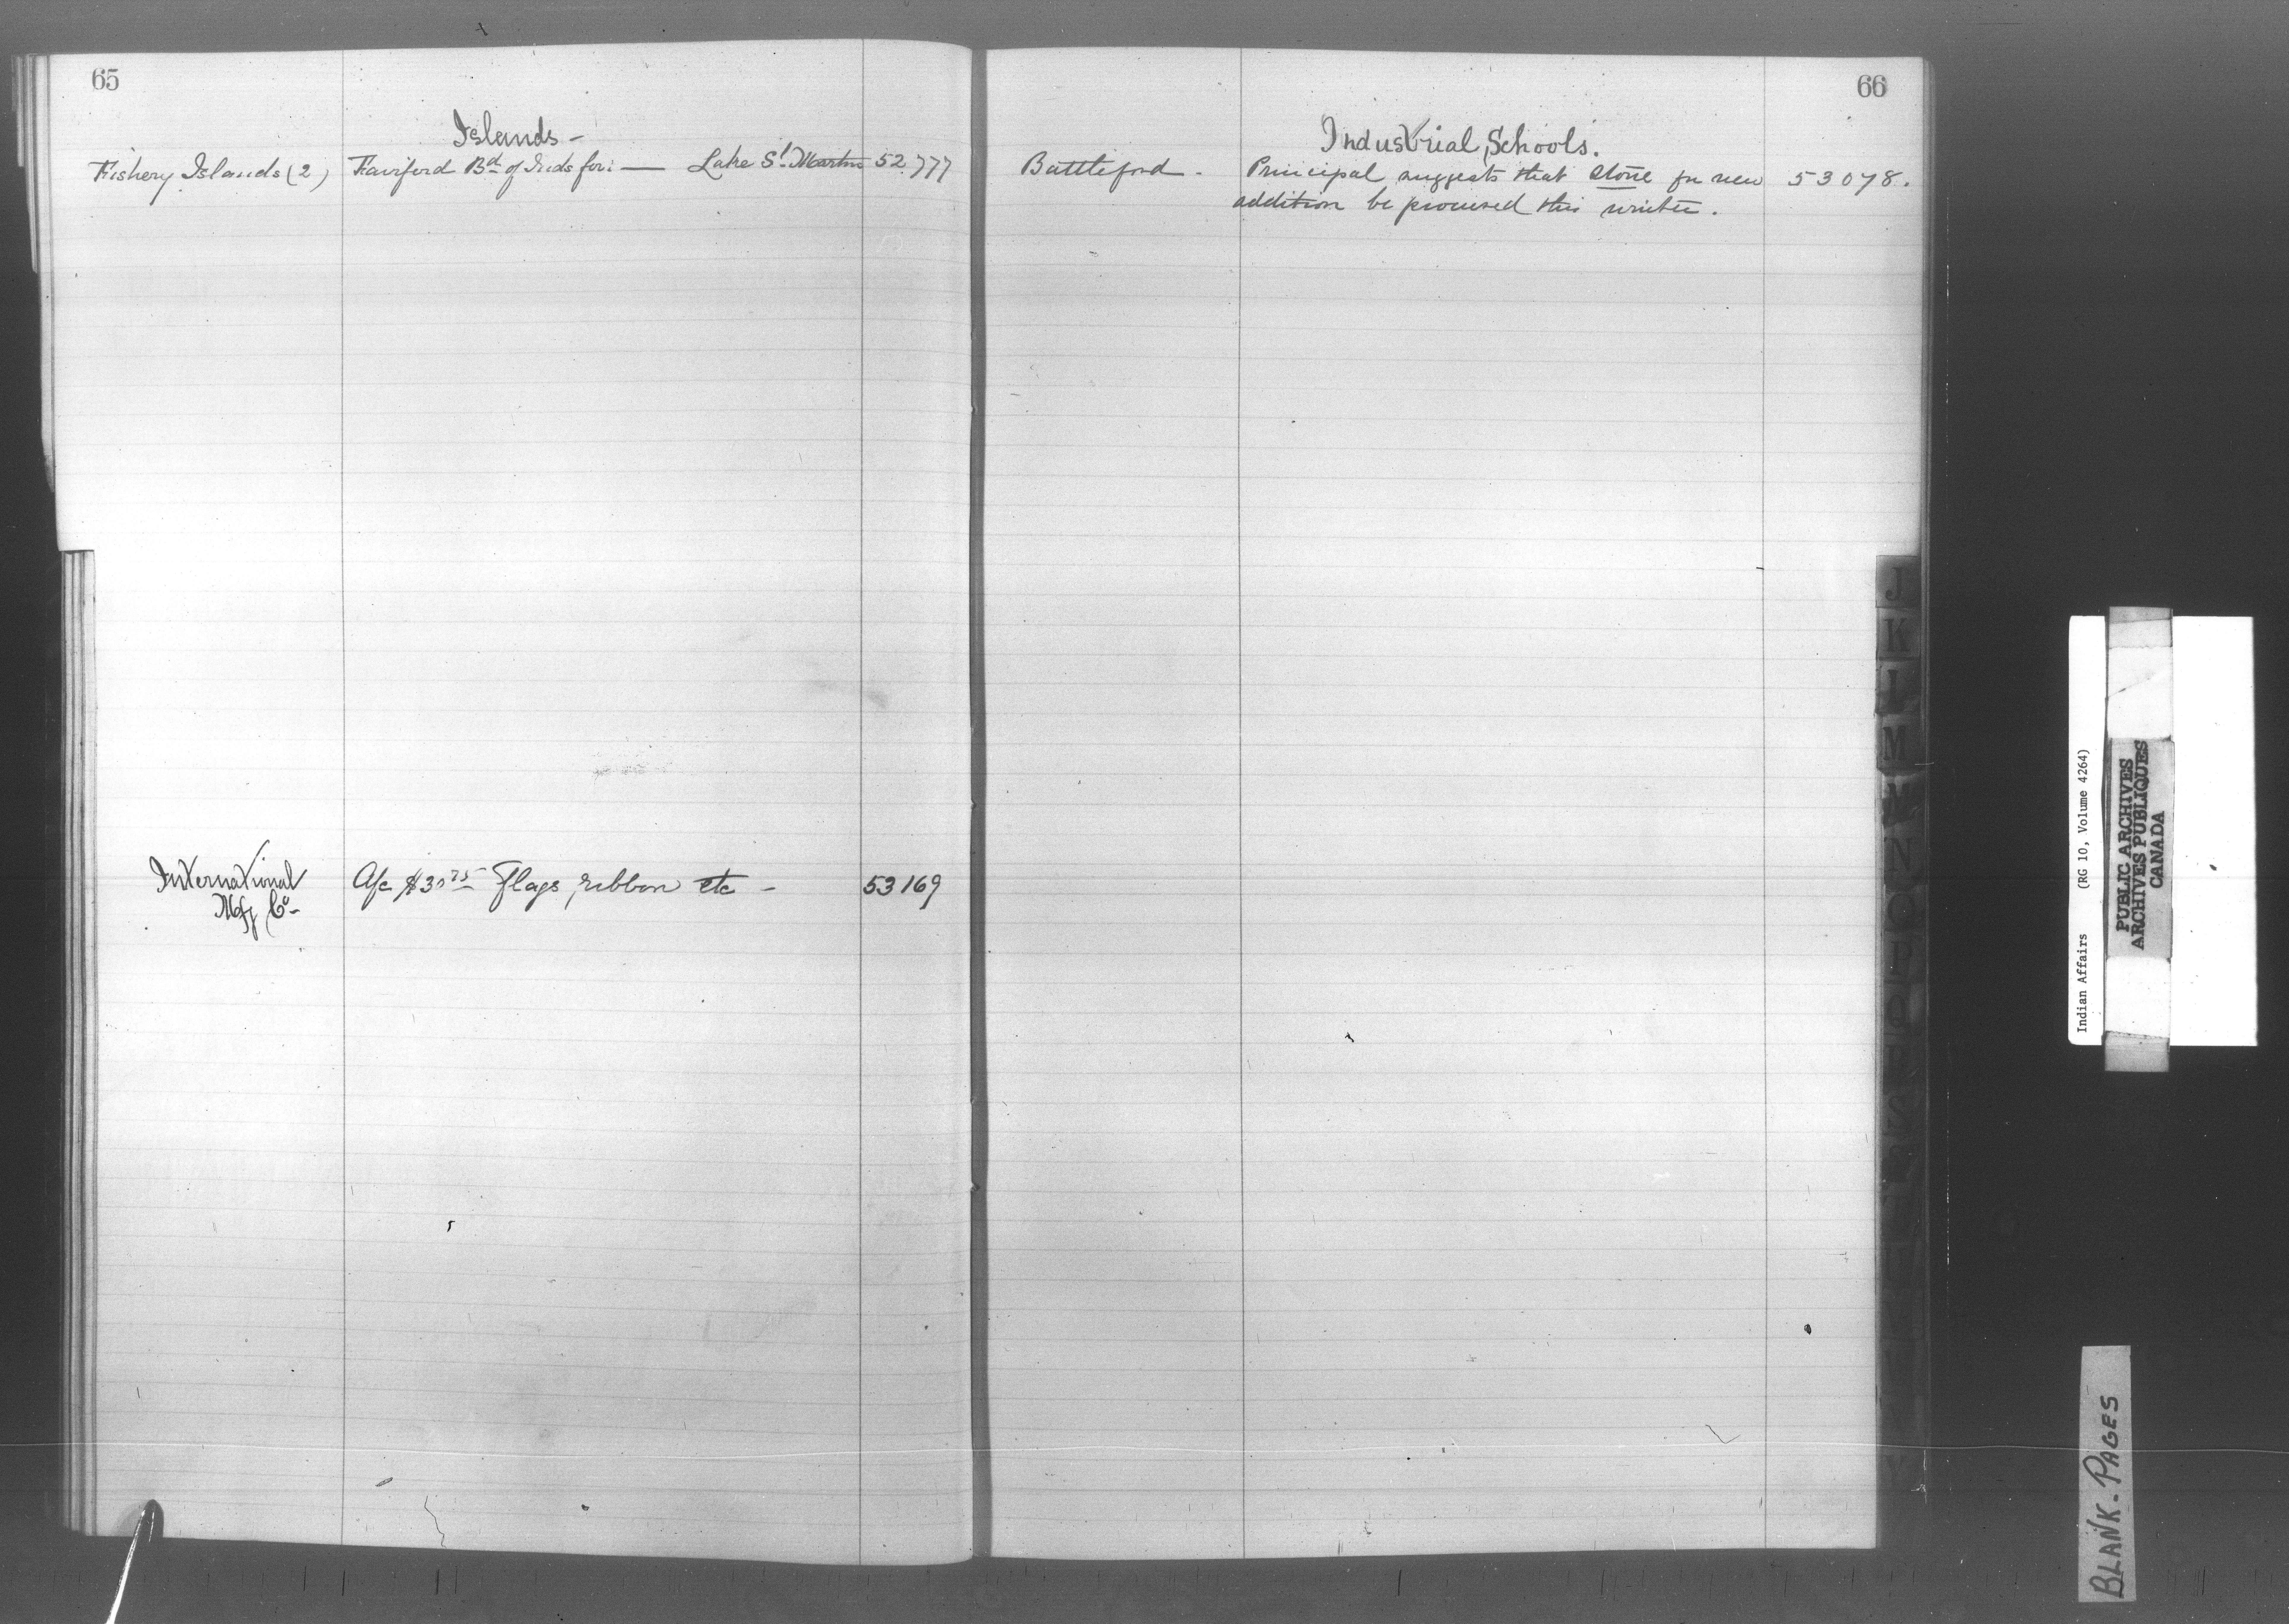 65
Islands -
Fishery Islands (2) Fairford Bd of Inds for: — Lake St. Martin 52.777
International Mfg Co - A/c $30 75 Flags, ribbon etc - 53169
66
Industrial Schools.
Battleford - Principal suggests that stone for new 53078.
addition be procured this winter.
J
K
L
M
Mc
N
O
P
Q
R
S
T
U
V
W
Y
Indian Affairs (RG 10, Volume 4264)
PUBLIC ARCHIVES
ARCHIVES PUBLIQUES
CANADA
BLANK-PAGES